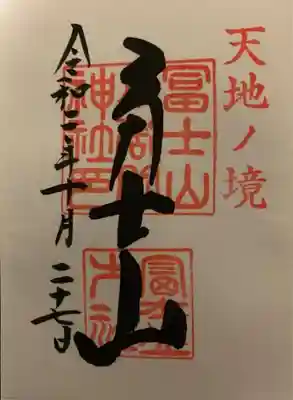 天地ノ境
冨士山
冨士山
神社印
令和二年十月二十七日